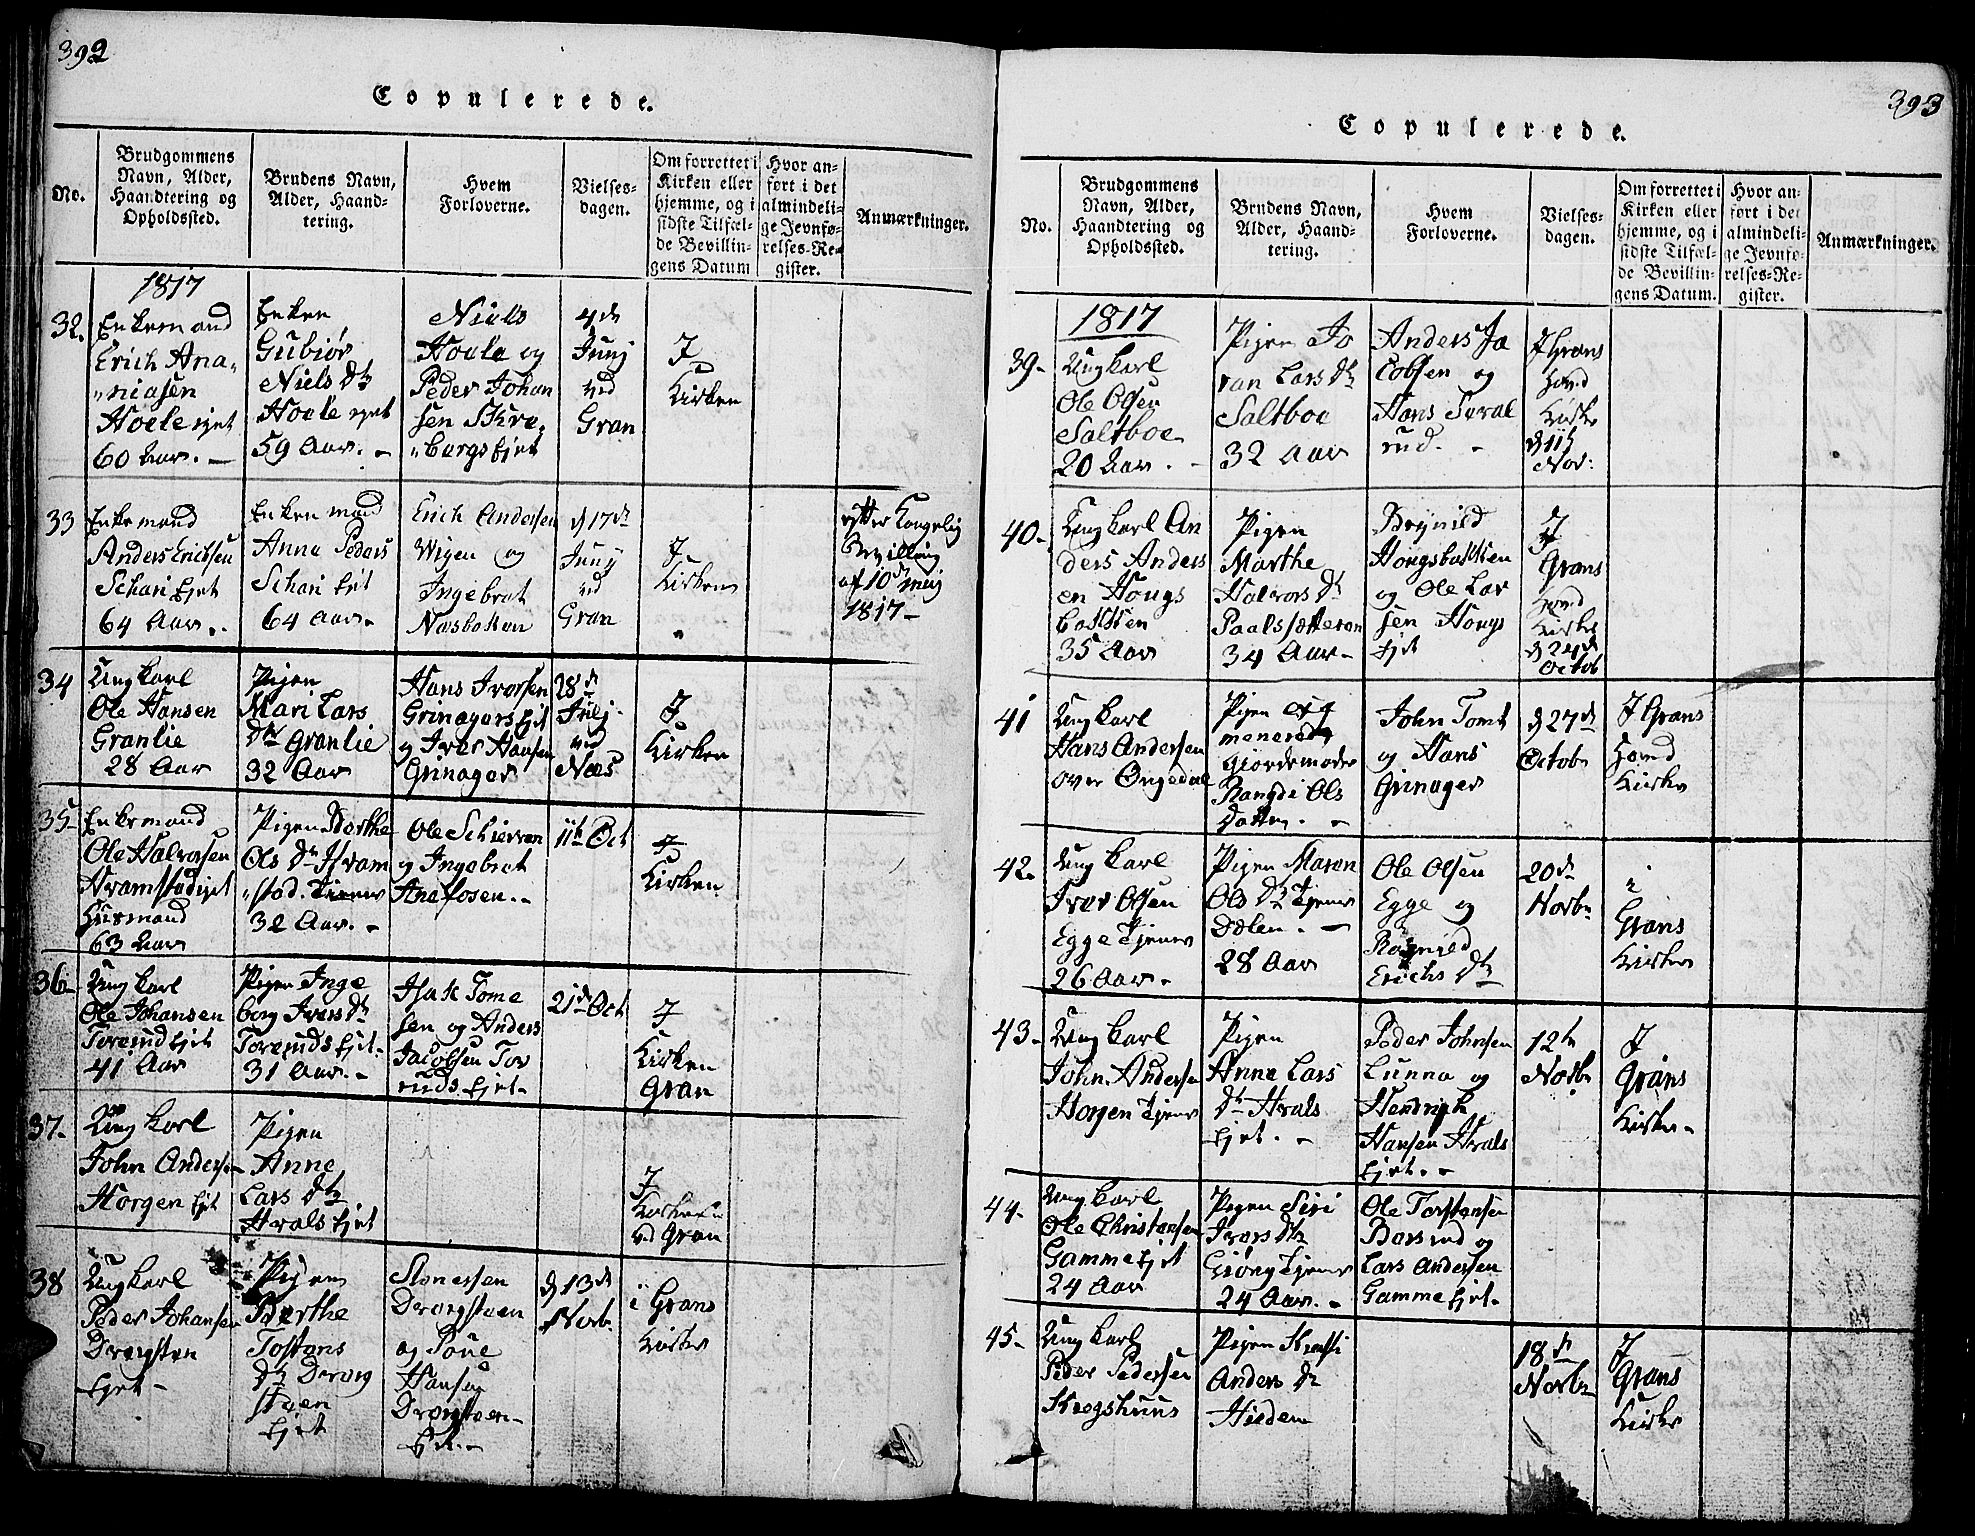 392
Copulerede.
No.
Brudgommens
Navn, Alder,
Haandtering og
Opholdssted.
Brudens Navn,
Alder, Haand-
tering.
Hvem
Forloverne.
Vielses-
dagen.
Om forrettet i
Kirken eller
hjemme, og i
sidste Tilfæl-
de Bevillin-
gens Datum
Hvor an-
ført i det
almindeli-
ge Jevnfø-
relses-Re-
gister.
Anmærkninger.
1817
32.
Enkemand
Erich Ana„
„niasen
Hoele ejet
60 Aar. —
Enken
Gubiør
Niels Dtr
Hoele ejet
59 Aar. -
Niels
Hoele og
Peder Johan
sen Skre„
„bergs Ejet
4de
Junj
ved
Gran
J
Kirken
33
Enkemand
Anders Erichsen
Schari Ejet
64 Aar..
Enken mand
Anna Peders
Schari Ejet
64 Aar.
Erich Andersen
Wigen og
Ingebret
Næsbakken
d 17de
Junij
ved
Gran
J
Kirken
efter Kongelig
Bevilling
af 10de Meij
1817-
34
Ung karl
Ole Hansen
Granlie
28 Aar
Pigen
Mari Lars
Dtr Granlie
32 Aar
Hans Iversen
Grinagers Ejet
og Iver Hansen
Grinager
28de
Julij
ved
Næs
J
Kirken
35
Enkemand
Ole Halvorsen
Hvamstad ejet
Husmand
63 Aar
Pigen Berthe
Ols Dtr Hvam
„stad. Tiener
32 Aar. -
Ole Schierven
og Ingebret
Anefosen..
11te Oct
J
Kirken
36
Ung karl
Ole Johansen
Torerud Ejet
41 Aar
Pigen Inge
borg Ivers Dtr
Toreruds Ejet.
31 Aar. -
Isak Tome
sen og Anders
Jacobsen Tor
ruds Ejet.
21de Oct
J
Kirken
Gran
37.
Ung karl
John Andersen
Horgen Ejet
Pigen
Anne
Lars Dtr
Hvals Ejet
J
Kirken
ved Gran
38
Ung karl
Peder Johansen
Ejet -
Pigen
Berthe
Tostens
Ejet
og
Hansen
d 13de
Novb.
i Grans
Kirke
393
Copulerede.
No.
Brudgommens
Navn, Alder,
Haandtering og
Opholdssted.
Brudens Navn,
Alder, Haand-
tering.
Hvem
Forloverne.
Vielses-
dagen.
Om forrettet i
Kirken eller
hjemme, og i
sidste Tilfæl-
de Bevillin-
gens Datum.
Hvor an-
ført i det
almindeli-
ge Jevnfø-
relses-Re-
gister.
Anmærkninger.
1817
39-
Ung karl
Ole Olsen
Saltboe
20 Aar. -
Pigen Jo
ran Lars Dtr
Saltboe
32 Aar
Anders Ja
cobsen og
Hans
rud. -
J Grans
Hoved
Kirke
d 11te
Nov:
40-
Ung karl An
ders Anders
en Hougs
bakken
35 Aar
Pigen
Marthe
Halvors Dtr
Paalsætteren
34 Aar-
Brynild
Hougsbakken
og Ole Lar
sen Hougs
Ejet
J
Grans
Hoved
Kirke
d 24de
Octob
41
Ung karl
Hans Andersen
over Ongedal
Pigen
Giordemoder
Rangdi Ols
Datter. -
John Tomt
og Hans
Grinager
d 27de
Octobr
J Grans
Hoved
Kirke
42.
Ung karl
Iver Olsen
Egge Tjener
26 Aar.
Pigen Maren
Ols Dtr Tjener
Dælen. -
28 Aar
Ole Olsen
Egge og
Ragnild
Erichs Dtr
20de
Novbr
i
Grans
Kirke
43-
Ung karl
John. Andersen
Horgen Tjener
Pigen
Anne Lars
Dtr Hvals
Ejet. -
Peder Johnsen
Lunna og
Hendrich
Hansen Hvals
Ejet. -
12te
Novbr
J
Grans
Kirke-
44-
Ung karl
Ole Christensen
Gamme Ejet
24 Aar
Pigen Siri
Ivers Dtr
Giøng Tjener
24 Aar. -
Ole Torstensen
og
Lars Andersen
Gamme Ejet.
45-
Ung karl
Peder Pedersen
Kregshuus
Pigen
Anders Dtr
Hieden
18de
Novbr
J
Grans
Kirke